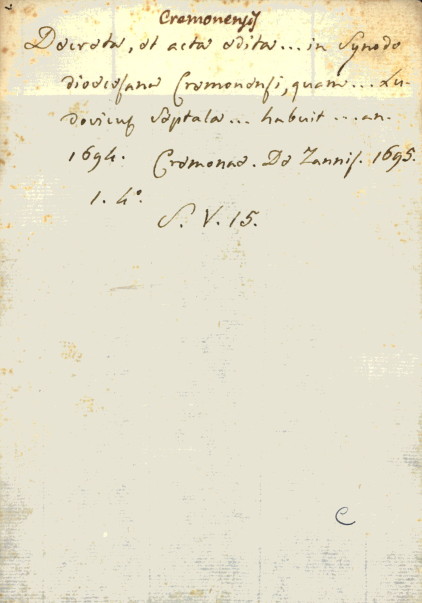 Cremonensis
Decreta, et acta edita... in Synodo
dioecesana Cremonensi, quam... Lu-
dovicus Septala... habuit... an.
1694. Cremonae. De Zannis. 1695.
1. 4°.
S. V. 15.
C